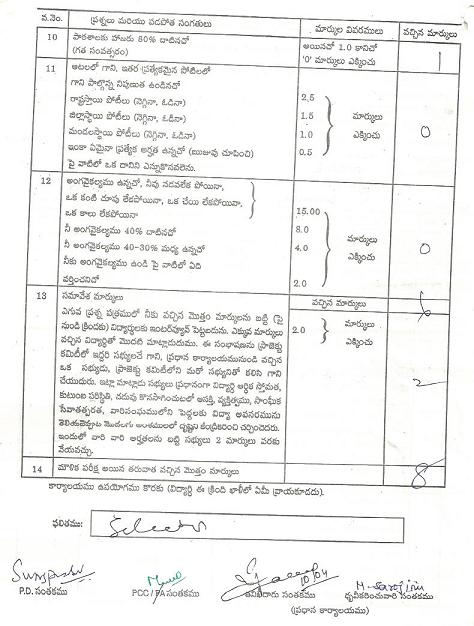 వ.నెం. ప్రశ్నలు మరియు పడపోత సంగతులు మార్కుల వివరములు వచ్చిన మార్కులు
10 పాఠశాలకు హాజరు 80% దాటినచో అయినచో 1.0 కానిచో 1
(గత సంవత్సరం) '0' మార్కులు ఎక్కించు
11 ఆటలలో గాని, ఇతర ప్రత్యేకమైన పోటిలలో
గాని పాల్గొన్న నిపుణత ఉండినచో
రాష్ట్రస్తాయి పోటీలు (నెగ్గినా, ఓడినా) 2.5
జిల్లాస్తాయి పోటీలు (నెగ్గినా, ఓడినా) 1.5 మార్కులు 0
మండలస్థాయి పోటీలు (నెగ్గినా, ఓడినా) 1.0 ఎక్కించు
ఇంకా ఏమైనా ప్రత్యేక అర్హత ఉన్నచో (ఋజువు చూపించి) 0.5
పై వాటిలో ఒక దానిని ఎన్నుకొనవలెను.
12 అంగవైకల్యము ఉన్నచో, నీవు నడవలేక పోయినా,
ఒక కంటి చూపు లేకపోయినా, ఒక చేయి లేకపోయినా, 15.00
ఒక కాలు లేకపోయినా 8.0
నీ అంగవైకల్యము 40% దాటినచో మార్కులు
నీ అంగవైకల్యము 40-30% మధ్య ఉన్నచో 4.0 ఎక్కించు 0
నీకు అంగవైకల్యము ఉండి పై వాటిలో ఏది
వర్తించనిచో 2.0
13 సమావేశ మార్కులు వచ్చిన మార్కులు 6
ఎగువ ప్రశ్న పత్రములో నీకు వచ్చిన మొత్తం మార్కులను బట్టి (పై 2.0 మార్కులు
నుండి క్రిందకు) విద్యార్థులకు ఇంటర్వ్యూస్ పెట్టబడును. ఎక్కువ మార్కులు ఎక్కించు
వచ్చిన విద్యార్థితో మొదటి మాట్లాడుదుము. ఈ సంభాషణను ప్రాజెక్టు
కమిటీలో ఇద్దరి సభ్యులచే గాని, ప్రధాన కార్యాలయమునుండి వచ్చిన
ఒక సభ్యుడు, ప్రాజెక్టు కమిటీలోని మరో సభ్యునితో కలిసి గాని
చేయుదురు. ఇట్లా మాట్లాడు సభ్యులు ప్రధానంగా విద్యార్థి ఆర్థిక స్తోమత, 2
కుటుంబ పరిస్థితి, చదువు కొనసాగించుటలో ఆసక్తి, వ్యక్తిత్వము, సాంఘీక
సేవాతత్పరత, వారిసంఘములోని పెద్దలకు విద్యా అవసరమును
తెలియజెప్పుట మొదలగు అంశములలో దృష్టిని కేంద్రీకరించి చర్చించెదరు.
ఇందులో వారి వారి అర్హతలను బట్టి సభ్యులు 2 మార్కులు వరకు
వేయవచ్చు.
14 మౌలిక పరీక్ష అయిన తరువాత వచ్చిన మొత్తం మార్కులు 8
కార్యాలయము ఉపయోగము కొరకు (విద్యార్థి ఈ క్రింది ఖాళీలో ఏమీ వ్రాయకూడదు).
ఫలితము:
10/04 M. Sarojini
P.D. సంతకము PCC / PA సంతకము తనిఖీదారు సంతకము ధృవీకరించువారి సంతకము
(ప్రధాన కార్యాలయం)